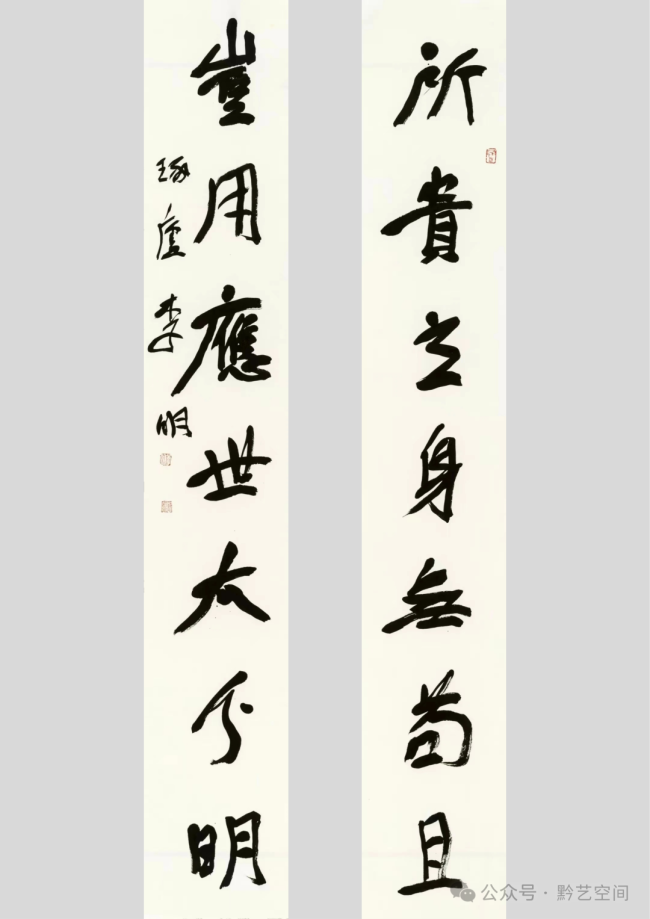 所貴立身無苟且
豈用應世太分明
琢廬 李明
公众号·黔艺空间